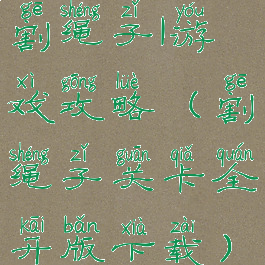 gē shéng zǐ yóu
割绳子|游
xì gōng lüè gē
戏攻略(割
shéng zǐ guān qiǎ quán
绳子关卡全
kāi bǎn xià zài
开版下载)